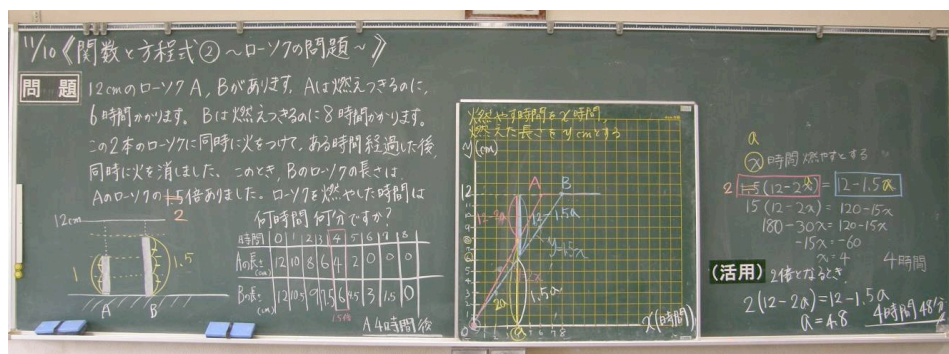 11/10 《関数と方程式② ~ローソクの問題~》
問題
12cmのローソクA, Bがあります。Aは燃えつきるのに、
6時間かかります。Bは燃えつきるのに8時間かかります。
この2本のローソクに同時に火をつけて、ある時間経過した後、
同時に火を消しました。このとき、Bのローソクの長さは
Aのローソクの1.5倍ありました。ローソクを燃やした時間は
2
何時間何分ですか?
12cm
1
1.5
A B
時間 0 1 2 3 4 5 6 7 8
Aの長さ(cm) 12 10 8 6 4 2 0 0 0
Bの長さ(cm) 12 10.5 9 7.5 6 4.5 3 1.5 0
1.5倍
A 4時間後
燃やす時間をx時間,
燃えた長さをycmとする
y(cm)
12
A
B
12-2a
12-1.5a
y=1.5x
2x
2a
1.5a
0
a
x(時間)
a
x時間燃やすとする
2 1.5(12-2x) = 12-1.5x
15(12-2x) = 120-15x
180-30x = 120-15x
-15x = -60
x = 4
4時間
(活用)
2倍となるとき
2(12-2a) = 12-1.5a
a = 4.8
4時間48分